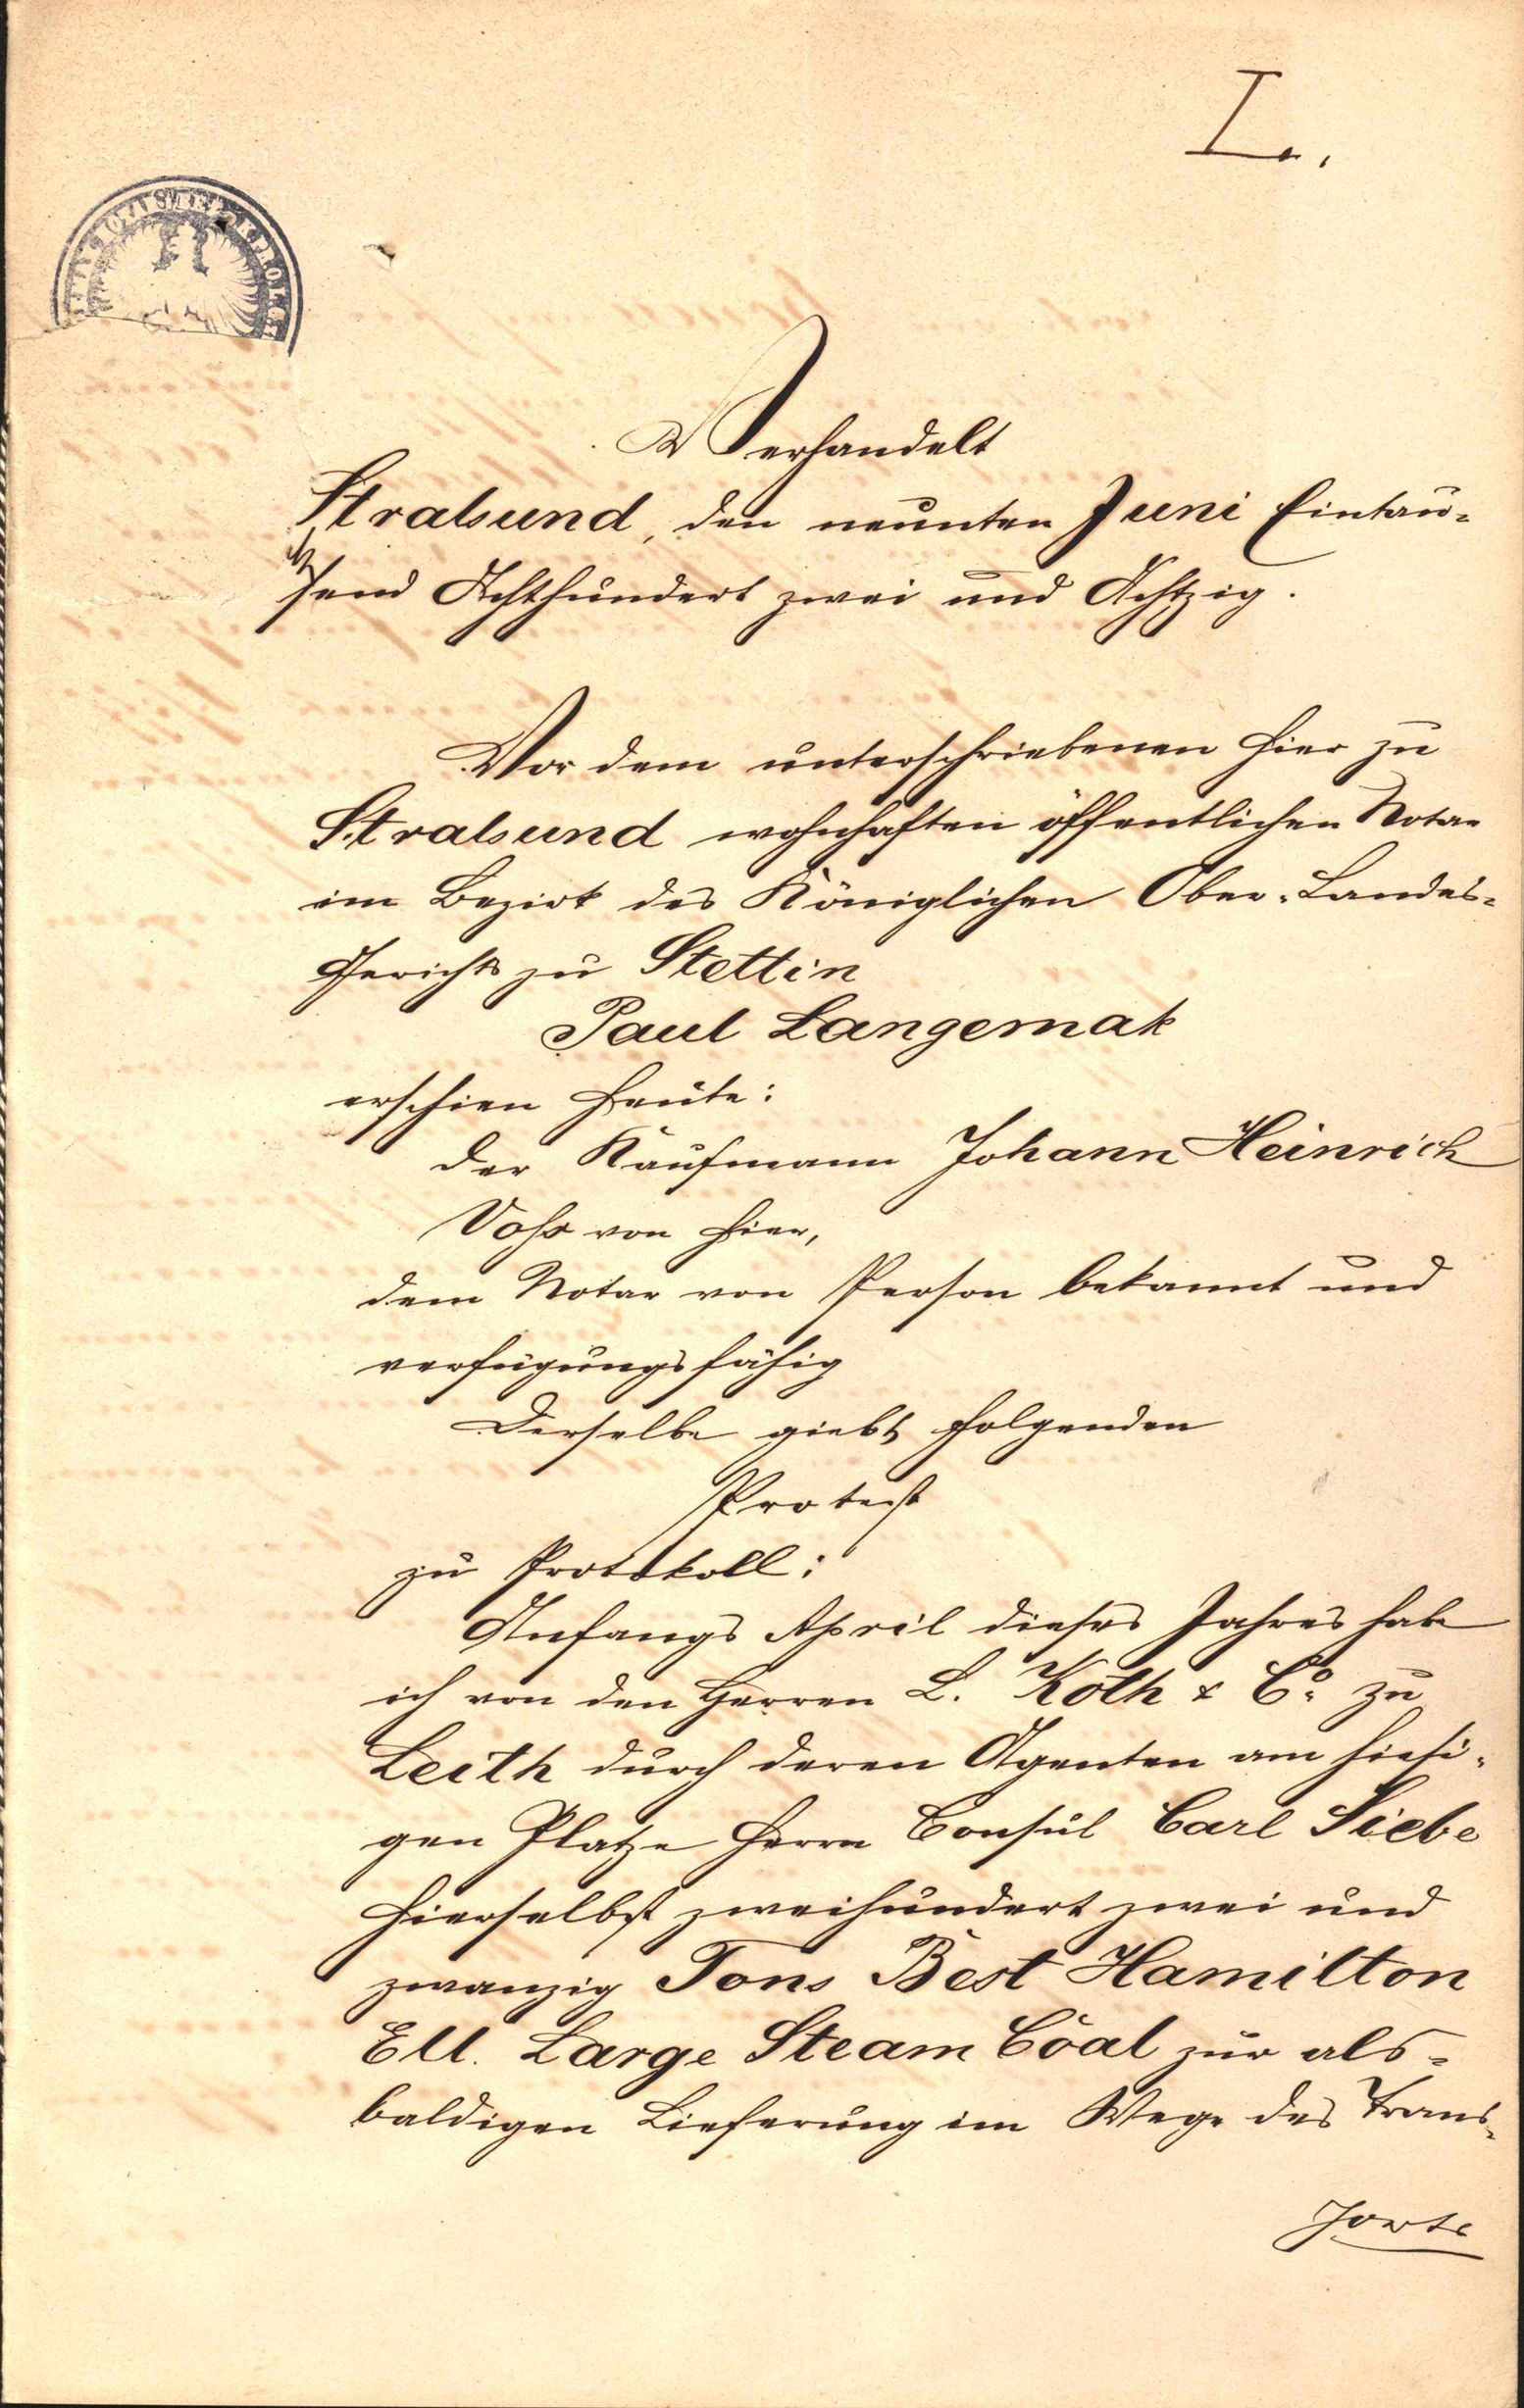 I.
Verhandelt
Stralsund, den neunten Juni Eintau-
send Achthundert zwei und Achtzig.
Vor dem unterschriebenen hier zu
Stralsund wohnhaften öffentlichen Notar
im Bezirk des Königlichen Ober-Landes-
Gerichts zu Stettin
Paul Langemak
erschien heute:
der Kaufmann Johann Heinrich
Vohs von hier,
dem Notar von Person bekannt und
verfügungsfähig
Derselbe giebt folgenden
Protest
zu Protokoll:
Anfangs April dieses Jahres habe
ich von den Herren L. Köth & Co. zu
Leith durch deren Agenten am hiesi-
gen Platze Herrn Consul Carl Siebe
hierselbst zweihundert zwei und
zwanzig Tons Best Hamilton
Ell. Large Steam Coal zur als-
baldigen Lieferung im Wege des Trans-